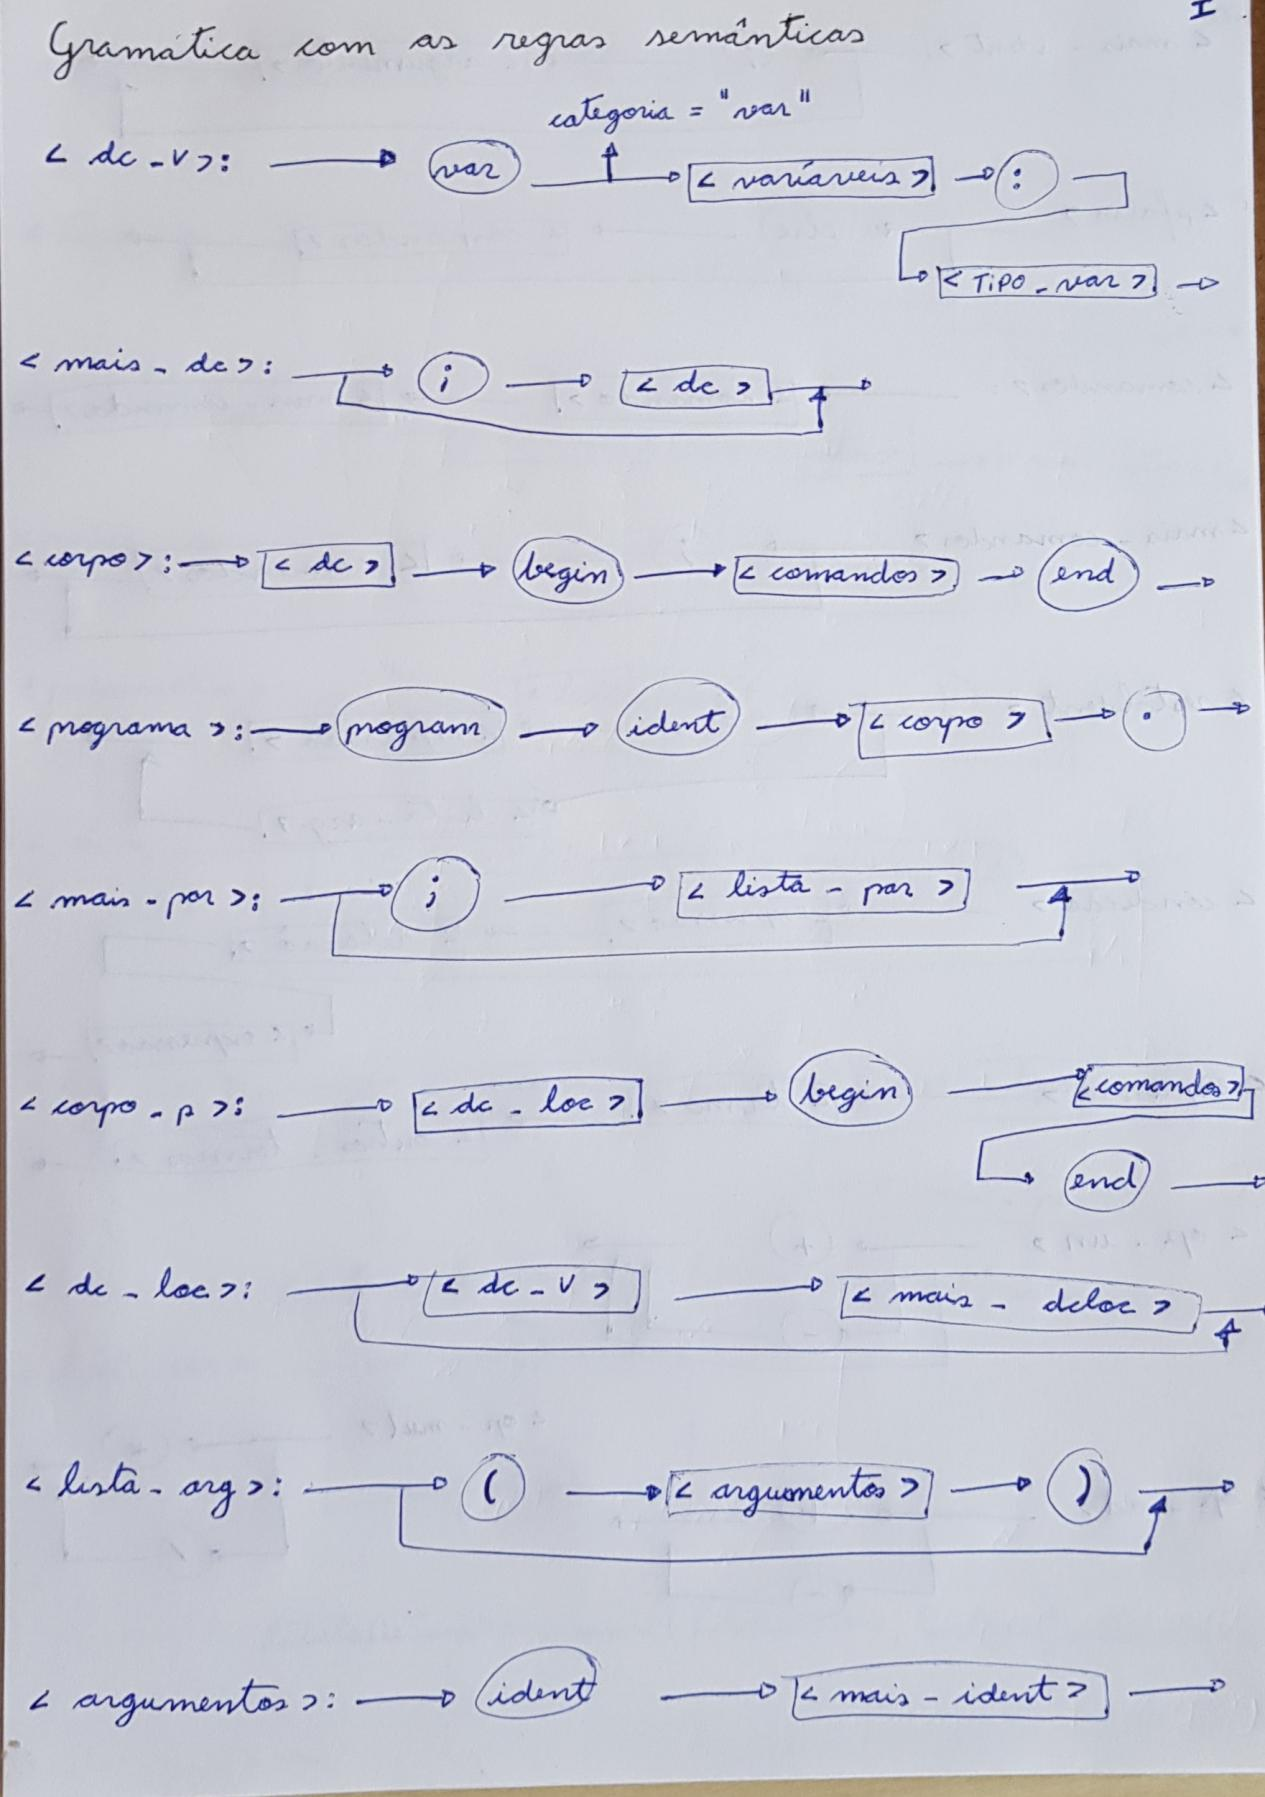 I
Gramática com as regras semânticas
categoria = "var"
< dc - v >: var < variáveis > :
< TiPO - var >
< mais - dc >: ; < dc >
< corpo >: < dc > begin < comandos > end
< programa >: program ident < corpo > .
< mais - par >: ; < lista - par >
< corpo - p >: < dc - loc > begin < comandos >
end
< dc - loc >: < dc - v > < mais - dcloc >
< lista - arg >: ( < argumentos > )
< argumentos >: ident < mais - ident >